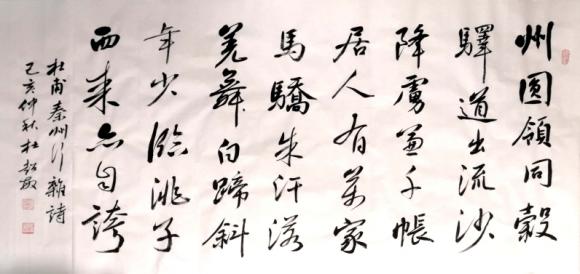 州圆領同穀
驛道出流沙
降虜兼千帳
居人有萬家
馬驕朱汗落
羌舞白蹄斜
年少臨洮子
西來亦自誇
杜甫秦州行雜詩
己亥仲秋杜